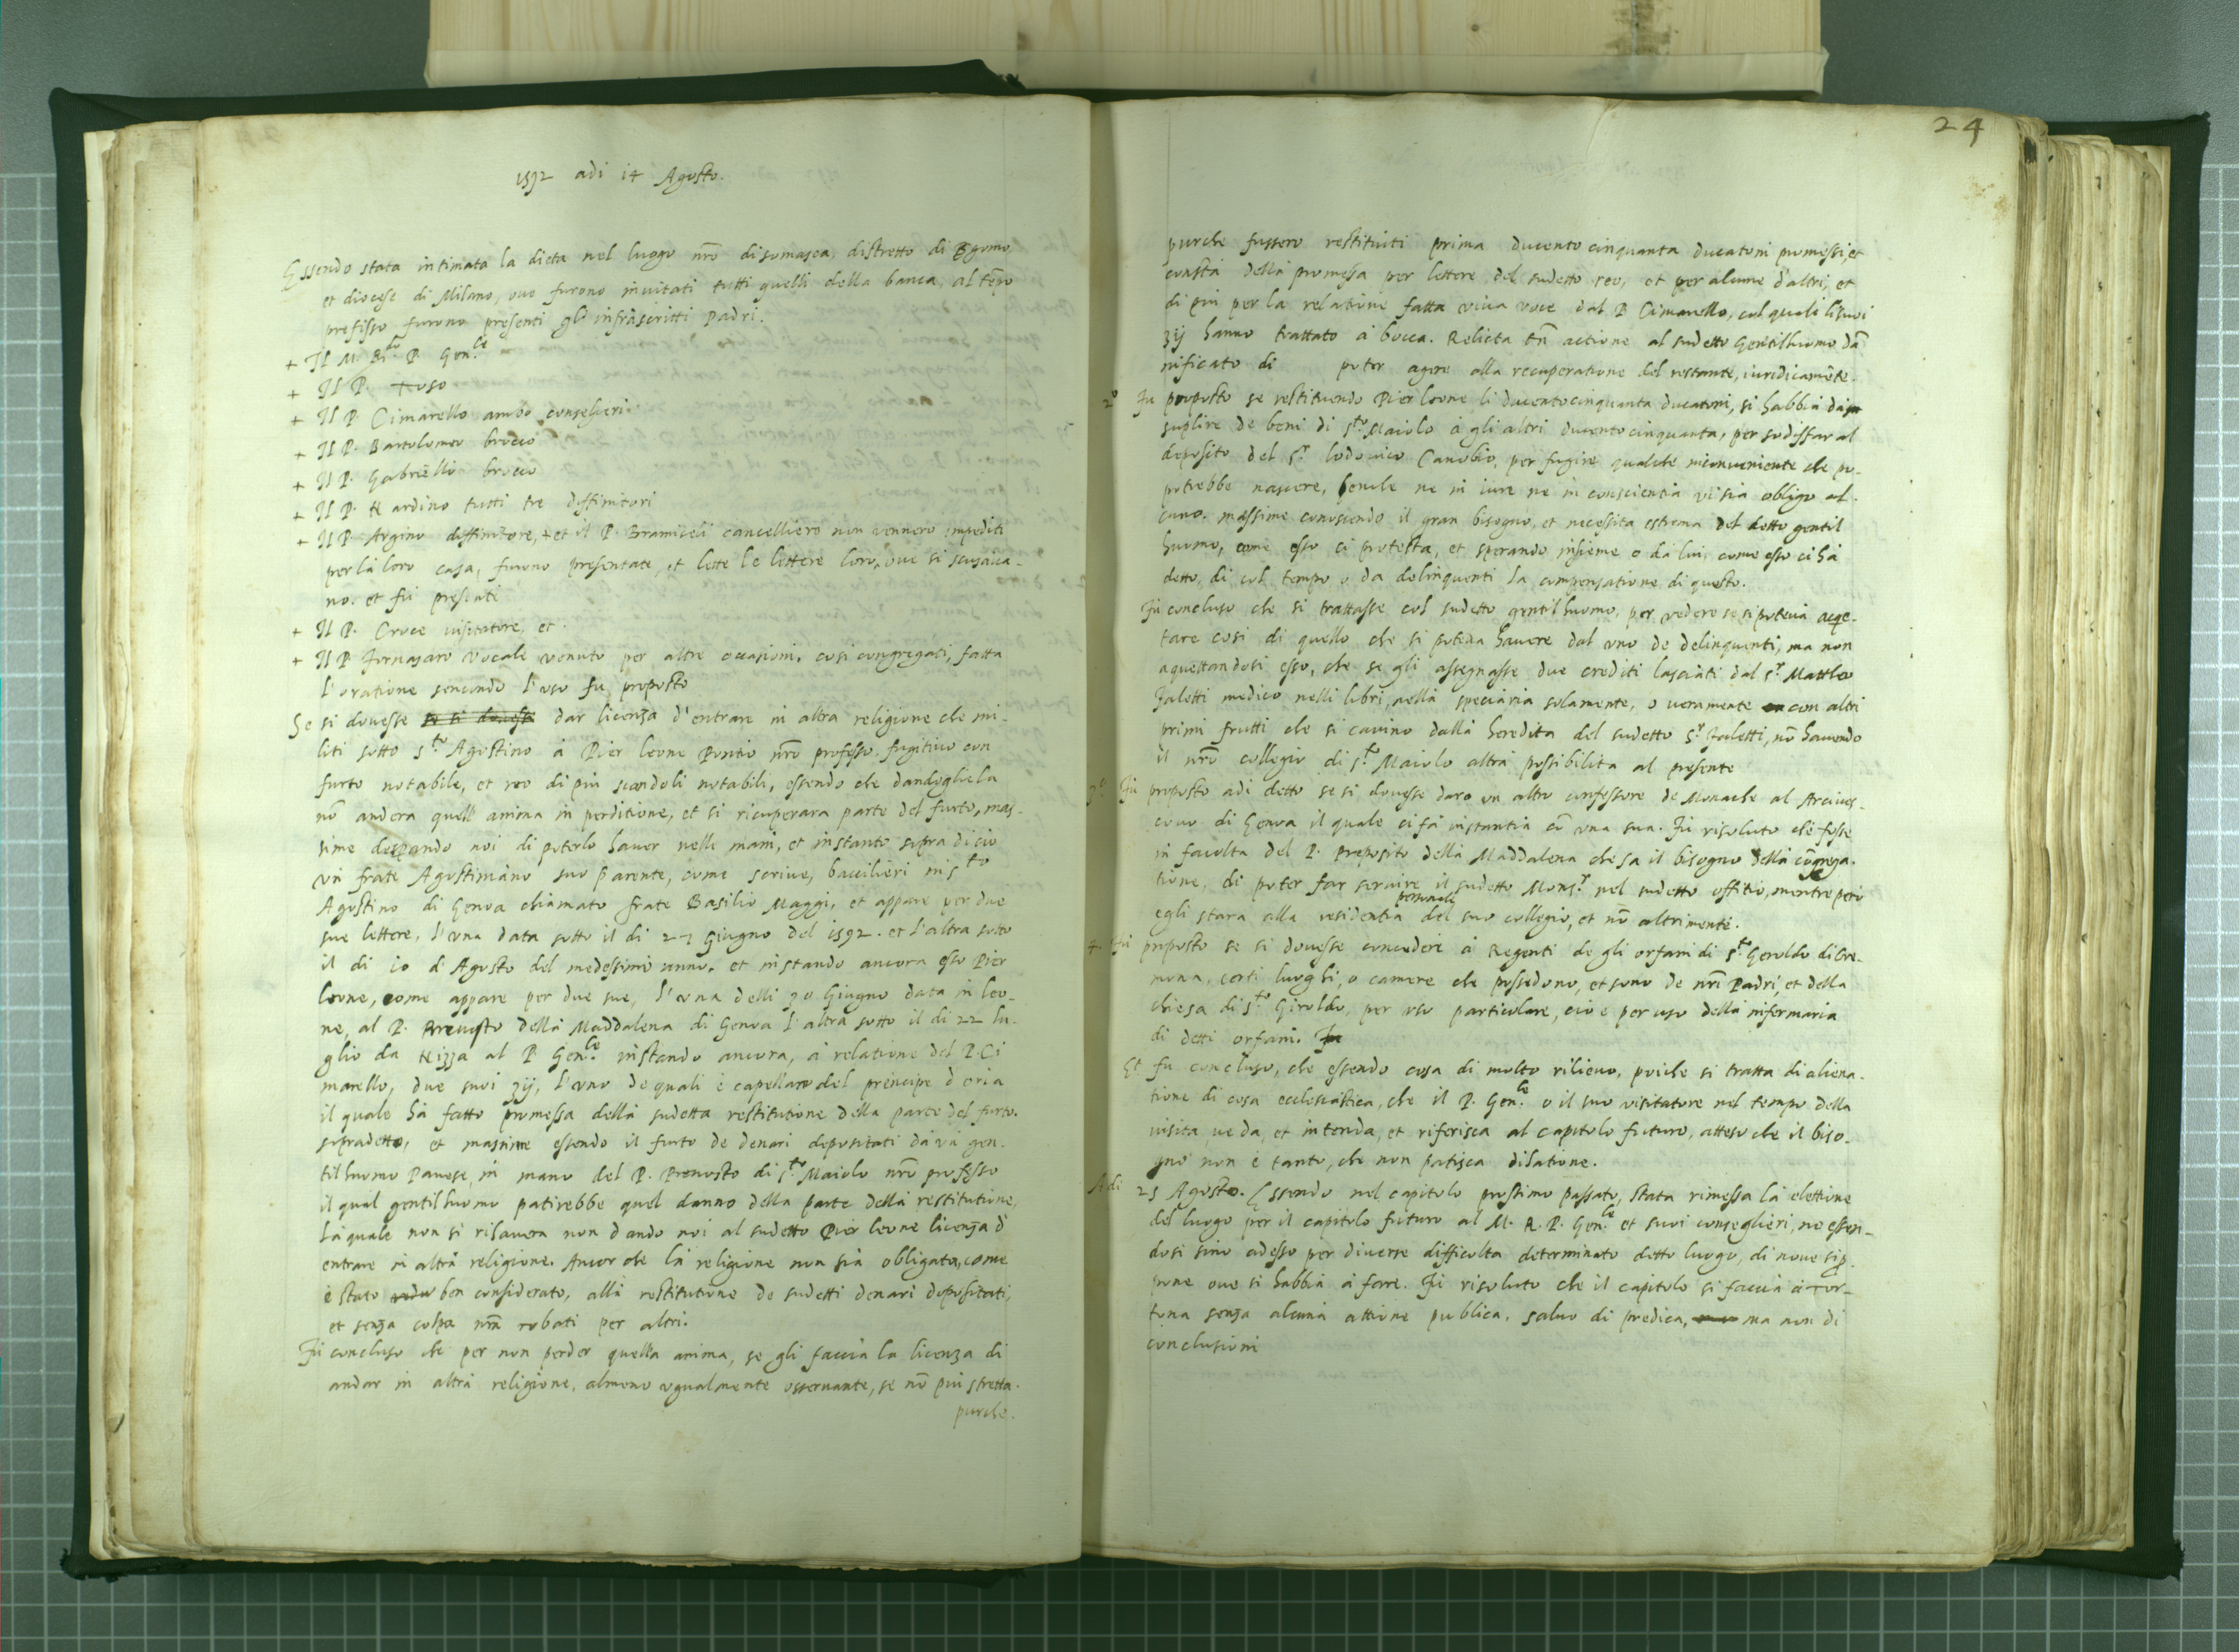 1592 adi 14 Agosto.
Essendo stata intimata la dieta nel luogo nr̃o di somasca, distretto di Bgomo,
et diocese di Milano, ove furono invitati tutti quelli della banca, al tẽpo
prefisso furono presenti gl' infrascritti Padri.
+ Il M. Rdo. P. Gen.le
+ Il P. Tuso
+ Il P. Cimarello ambo conselieri.
+ Il P. Bartolomeo brocco
+ Il P. Gabriello brocco
+ Il P. Nardino tutti tre diffinitori
+ Il P. Argino diffinitore, + et il P. Bramiceli cancelliero non vennero impediti
per la loro casa, furono presentate, et lette le lettere loro, ove si scusava-
no. et fù presente
+ Il P. Croce visitatore, et.
+ Il P Fornasaro vocale venuto per altre occasioni. cosi congregati, fatta
l'oratione secondo l'uso fu proposto
Se si dovesse se si dovesse dar licenza d'entrare in altra religione che mi-
liti sotto s.to Agostino à Pier leone Pontio nr̃o professo. fugitivo con
furto notabile, et reo di piu scandoli notabili, essendo che dandogliela
nõ andera quell' anima in perditione, et si ricuperara parte del furto, mas-
sime desperando noi di poterlo haver nelle mani, et instante sopra di cio
un frate Agostiniano suo parente, come scrive, baccilieri in s.to
Agostino di Genova chiamato frate Basilio Maggi, et appare per due
sue lettere, l'una data sotto il di 27 Giugno del 1592. et l'altra sotto
il di 10 d'Agosto del medessimo anno. et instando ancora esso Pier
leone, come appare per due sue, l'una delli 30 Giugno data in leo-
ne, al P. Prevosto della Maddalena di Genova l'altra sotto il di 22 lu-
glio da Nizza al P. Gen.le instando ancora, à relatione del P. Ci
marello, due suoi zij, l'uno de quali è capellano del principe d'oria
il quale hà fatto promessa della sudetta restitutione della parte del furto.
sopradetto, et massime essendo il furto de denari depositati da un gen-
tilhuomo Pavese, in mano del P. Prevosto di s.to Maiolo nr̃o professo
il qual gentilhuomo patirebbe quel danno della parte della restitutione,
la quale non si risavera non dando noi al sudetto Pier leone licenza d'
entrare in altra religione. Ancor che la religione non sia obligata, come
è stato ben considerato, alla restitutione de sudetti denari depositati,
et senza colpa nr̃a robati per altri.
Fù concluso che per non perder quella anima, se gli faccia la licenza di
andar in altra religione, almeno ugualmente osservante, se nõ piu stretta.
purche.
24
purche fussero restituiti prima ducento cinquanta ducatoni promessi, et
consta della promessa per lettere del sudetto reo, et per alcune d'altri, et
di piu per la relatione fatta viva voce dal P Cimarello, col quale li suoi
zij hanno trattato à bocca. Relicta tñ actione al sudetto Gentilhuomo dã
nificato di poter agere alla recuperatione del restante, iuridicamẽte.
2o Fu proposto se restituendo Pier leone li ducentocinquanta ducatoni, si habbia da
suplire de beni di s.to Maiolo à gli altri ducentocinquanta, per sodisfar al
deposito del s.r lodovico Canobio, per fugire qualche inconveniente che po-
potrebbe nascere, benche ne in iure ne in conscientia vi sia obligo al-
cuno. massime conoscendo il gran bisogno, et necessita estrema del detto gentil
huomo, come esso si protesta, et sperando insieme o da lui, come esso ci hà
detto, di col tempo o da delinquenti la compensatione di questo.
Fù concluso che si trattasse col sudetto gentilhuomo, per vedere se si poteva acqe-
tare cosi di quello che si poteva havere dal uno de delinquenti, ma non
aquettandosi esso, che se gli assegnasse due crediti lasciati dal s.r Mattheo
Faletti medico nelli libri, nella speciaria solamente, o veramente con altri
primi frutti che si cavino dalla heredita del sudetto s.r Faletti, nõ havendo
il nr̃o collegio di s.to Maiolo altra possibilita al presente
3o Fù proposto adi detto se si dovesse dare un altro confessore de Monache al Arcives-
covo di Genova il quale ci fà instantia cũ una sua. Fù risoluto che fosse
in facolta del P. Preposito della Maddalena che sa il bisogno della cõgrega-
tione, di poter far servire il sudetto Mons.r nel sudetto offitio, mentre però
egli stara alla residentia personale del suo collegio, et nõ altrimente.
4. Fù proposto se si dovesse concedere à Regenti de gli orfani di s.to Geroldo di Cre-
mona, certi luoghi, o camere che possedono, et sono de nr̃i Padri, et della
chiesa di s.to Giroldo, per uso particolare, cio è per uso della infermaria
di detti orfani. Fu
Et fu concluso, che essendo cosa di molto rilievo, poiche si tratta di aliena-
tione di cosa ecclesiastica, che il P. Gen.le o il suo visitatore nel tempo della
visita, veda, et intenda, et riferisca al capitolo futuro, atteso che il biso-
gno non è tanto, che non patisca dilatione.
Adi 25 Agosto. Essendo nel capitolo prossimo passato, stata rimessa la elettione
del luogo per il capitolo futuro al M. R. P. Gen.le et suoi conseglieri, ne essen-
dosi sino adesso per diverse difficolta determinato detto luogo, di novo si p-
pone ove si habbia à fare. Fù risoluto che il capitolo si faccia à Tor-
tona senza alcuna attione publica, salvo di predica, ma non di
conclusioni